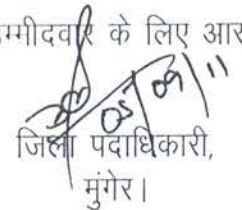 म्मीदवार के लिए आर
05/09/11
जिला पदाधिकारी,
मुंगेर।